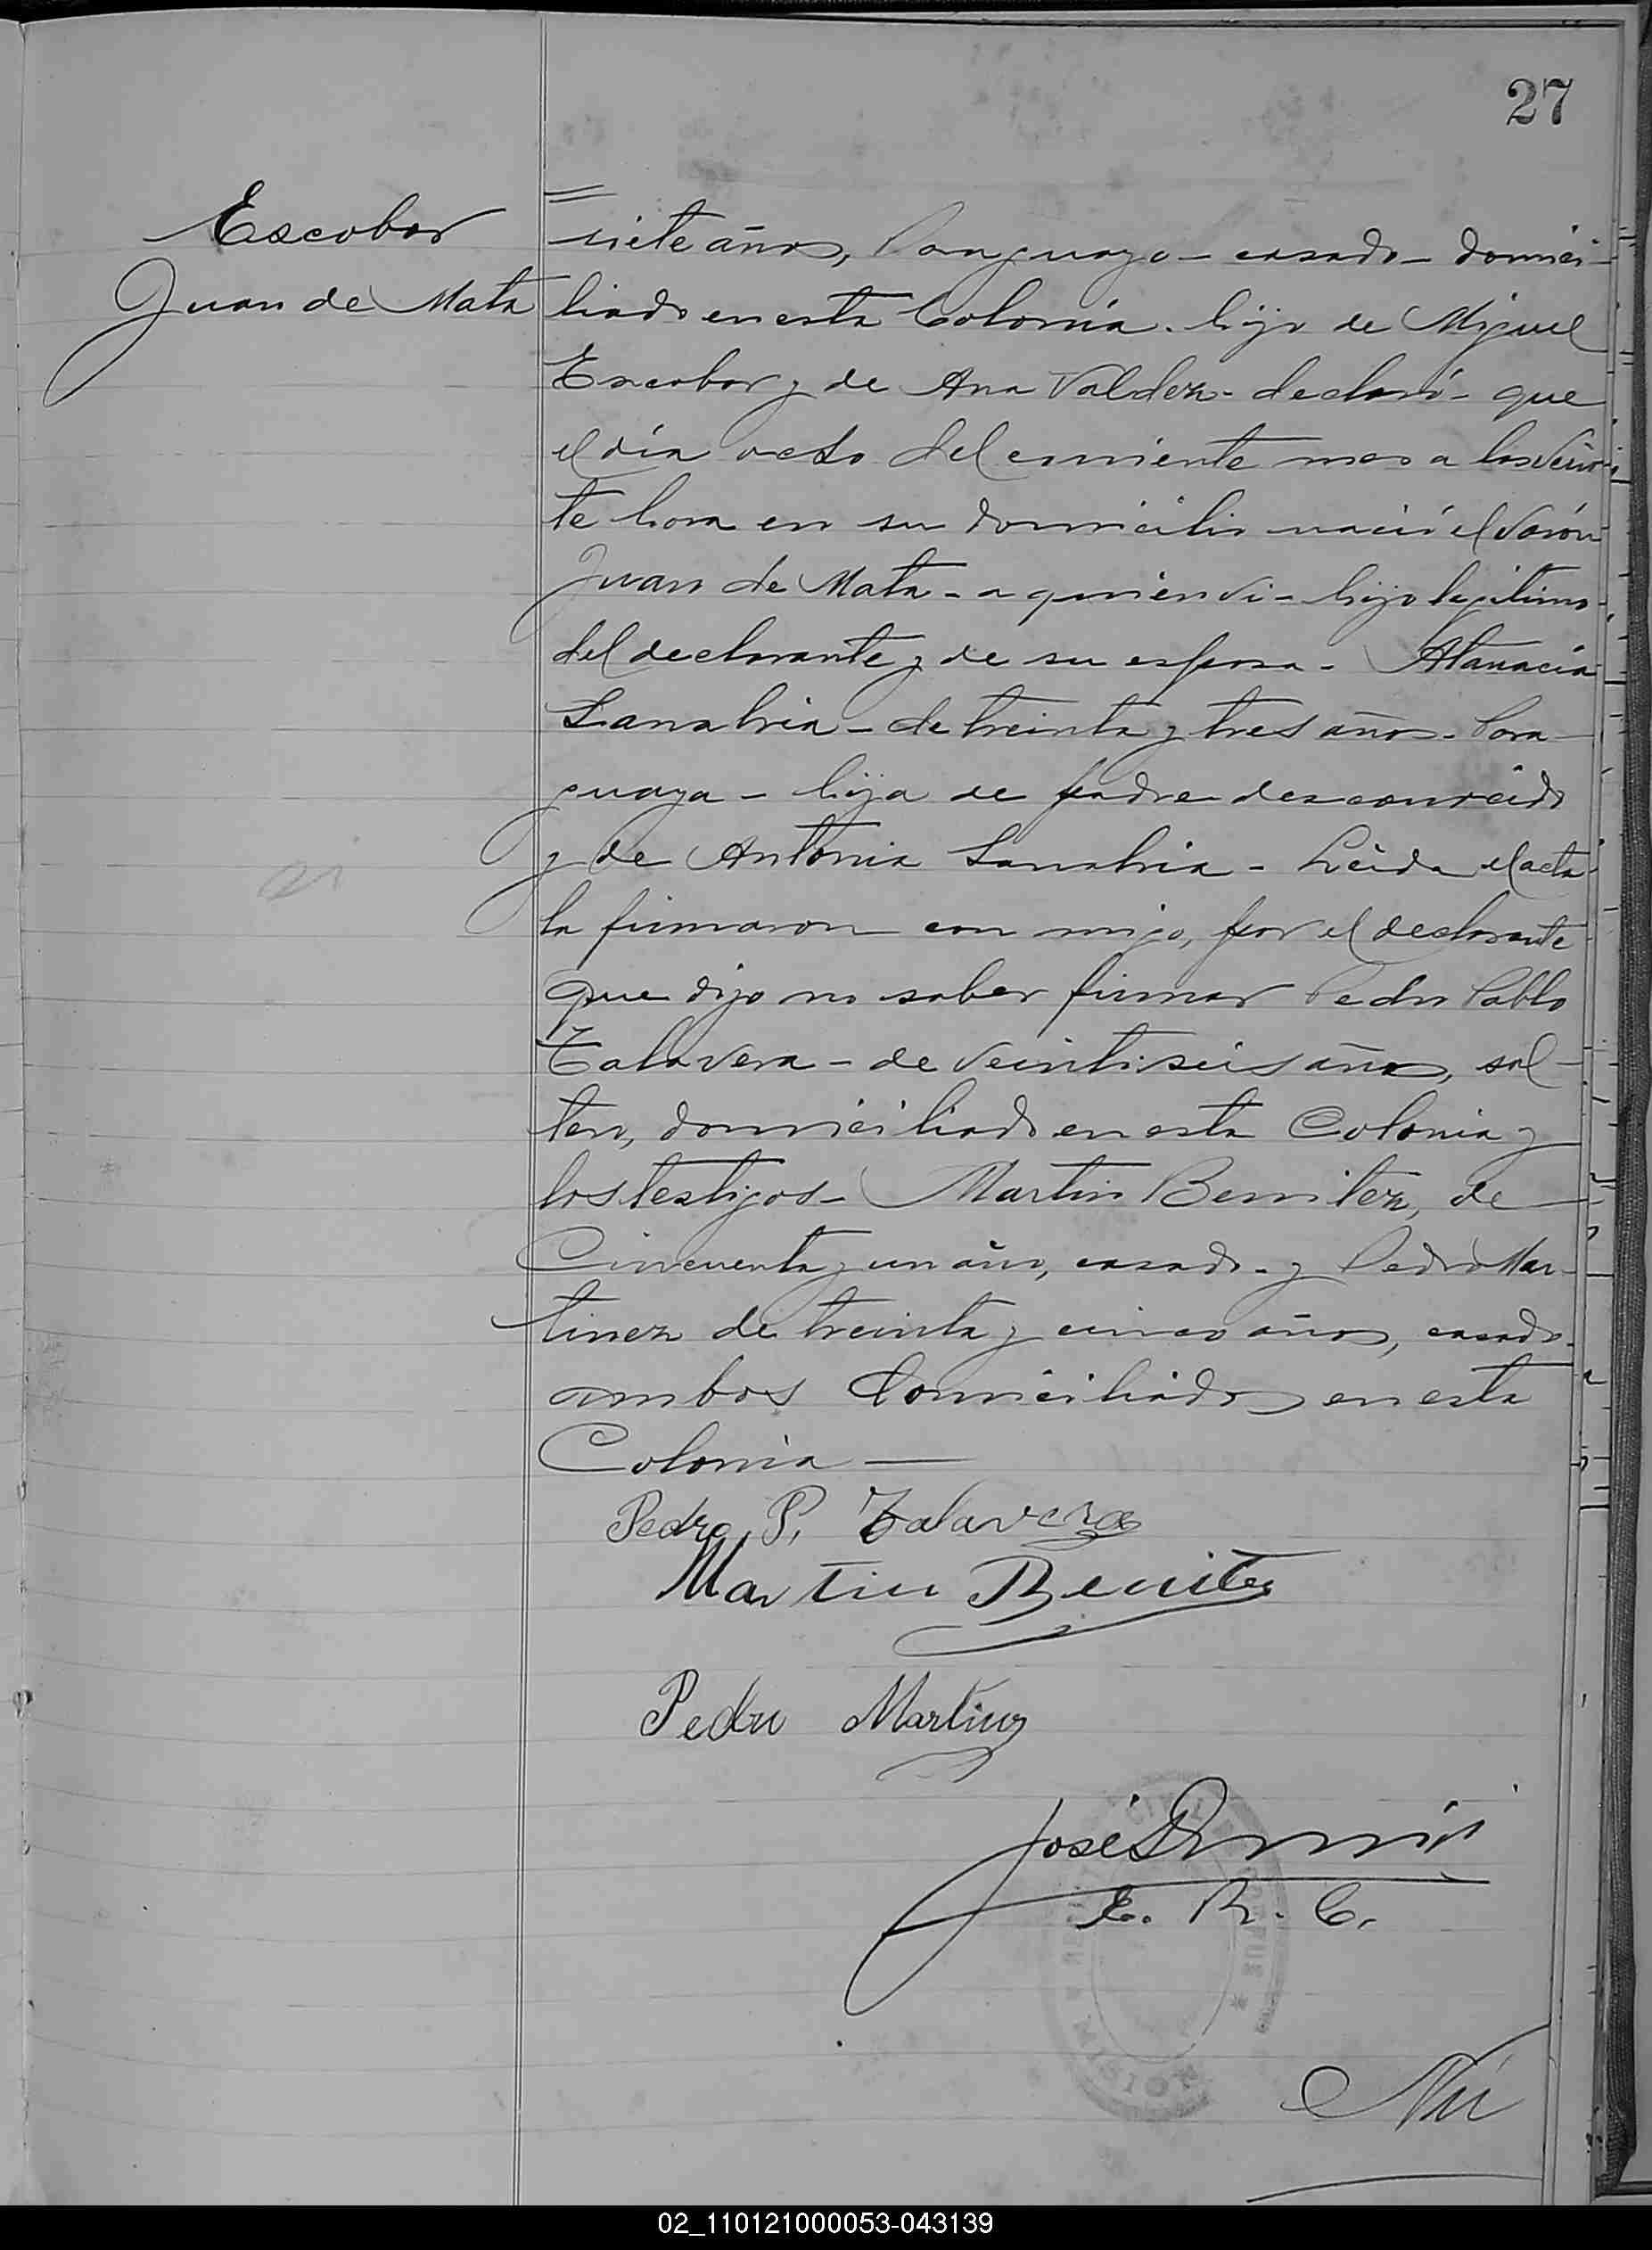 27
Escobar
Juan de Mata
siete años, Paraguayo - casado - domici-
liado en esta Colonia. hijo de Miguel
Escobar y de Ana Valdez - declaró - que
el día ocho del corriente mes a las vein-
te hora en su domicilio nació el varón
Juan de Mata - a quien vi - hijo legitimo
del declarante y de su esposa - Atanacia
Sanabria - de treinta y tres años - Para-
guaya - hija de padre desconocido
y de Antonia Sanabria - Leida el acta
la firmaron con migo, por el declarante
que dijo no saber firmar Pedro Pablo
Talavera - de veintiseis años, sol-
tero, domiciliado en esta Colonia y
los testigos - Martin Benitez, de
Cincuenta y un año, casado - y Pedro Mar-
tinez de treinta y cinco años, casado -
ambos domiciliados en esta
Colonia —
Pedro P. Talavera
Martin Benitez
Pedro Martinez
José
E. R. C.
Nú
02_110121000053-043139